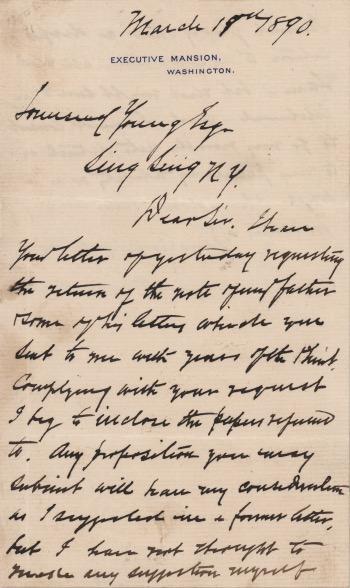 March 19th 1890.
EXECUTIVE MANSION,
WASHINGTON.
Townsend Young Esq.
Sing Sing N.Y.
Dear Sir. I have
your letter of yesterday requesting
the return of the note of my father
& some of his letters which you
sent to me with yours of the 8th inst.
Complying with your request
I beg to inclose the papers referred
to. Any proposition you may
submit will have my consideration
as I suggested in a former letter,
but I have not thought to
make any suggestion myself